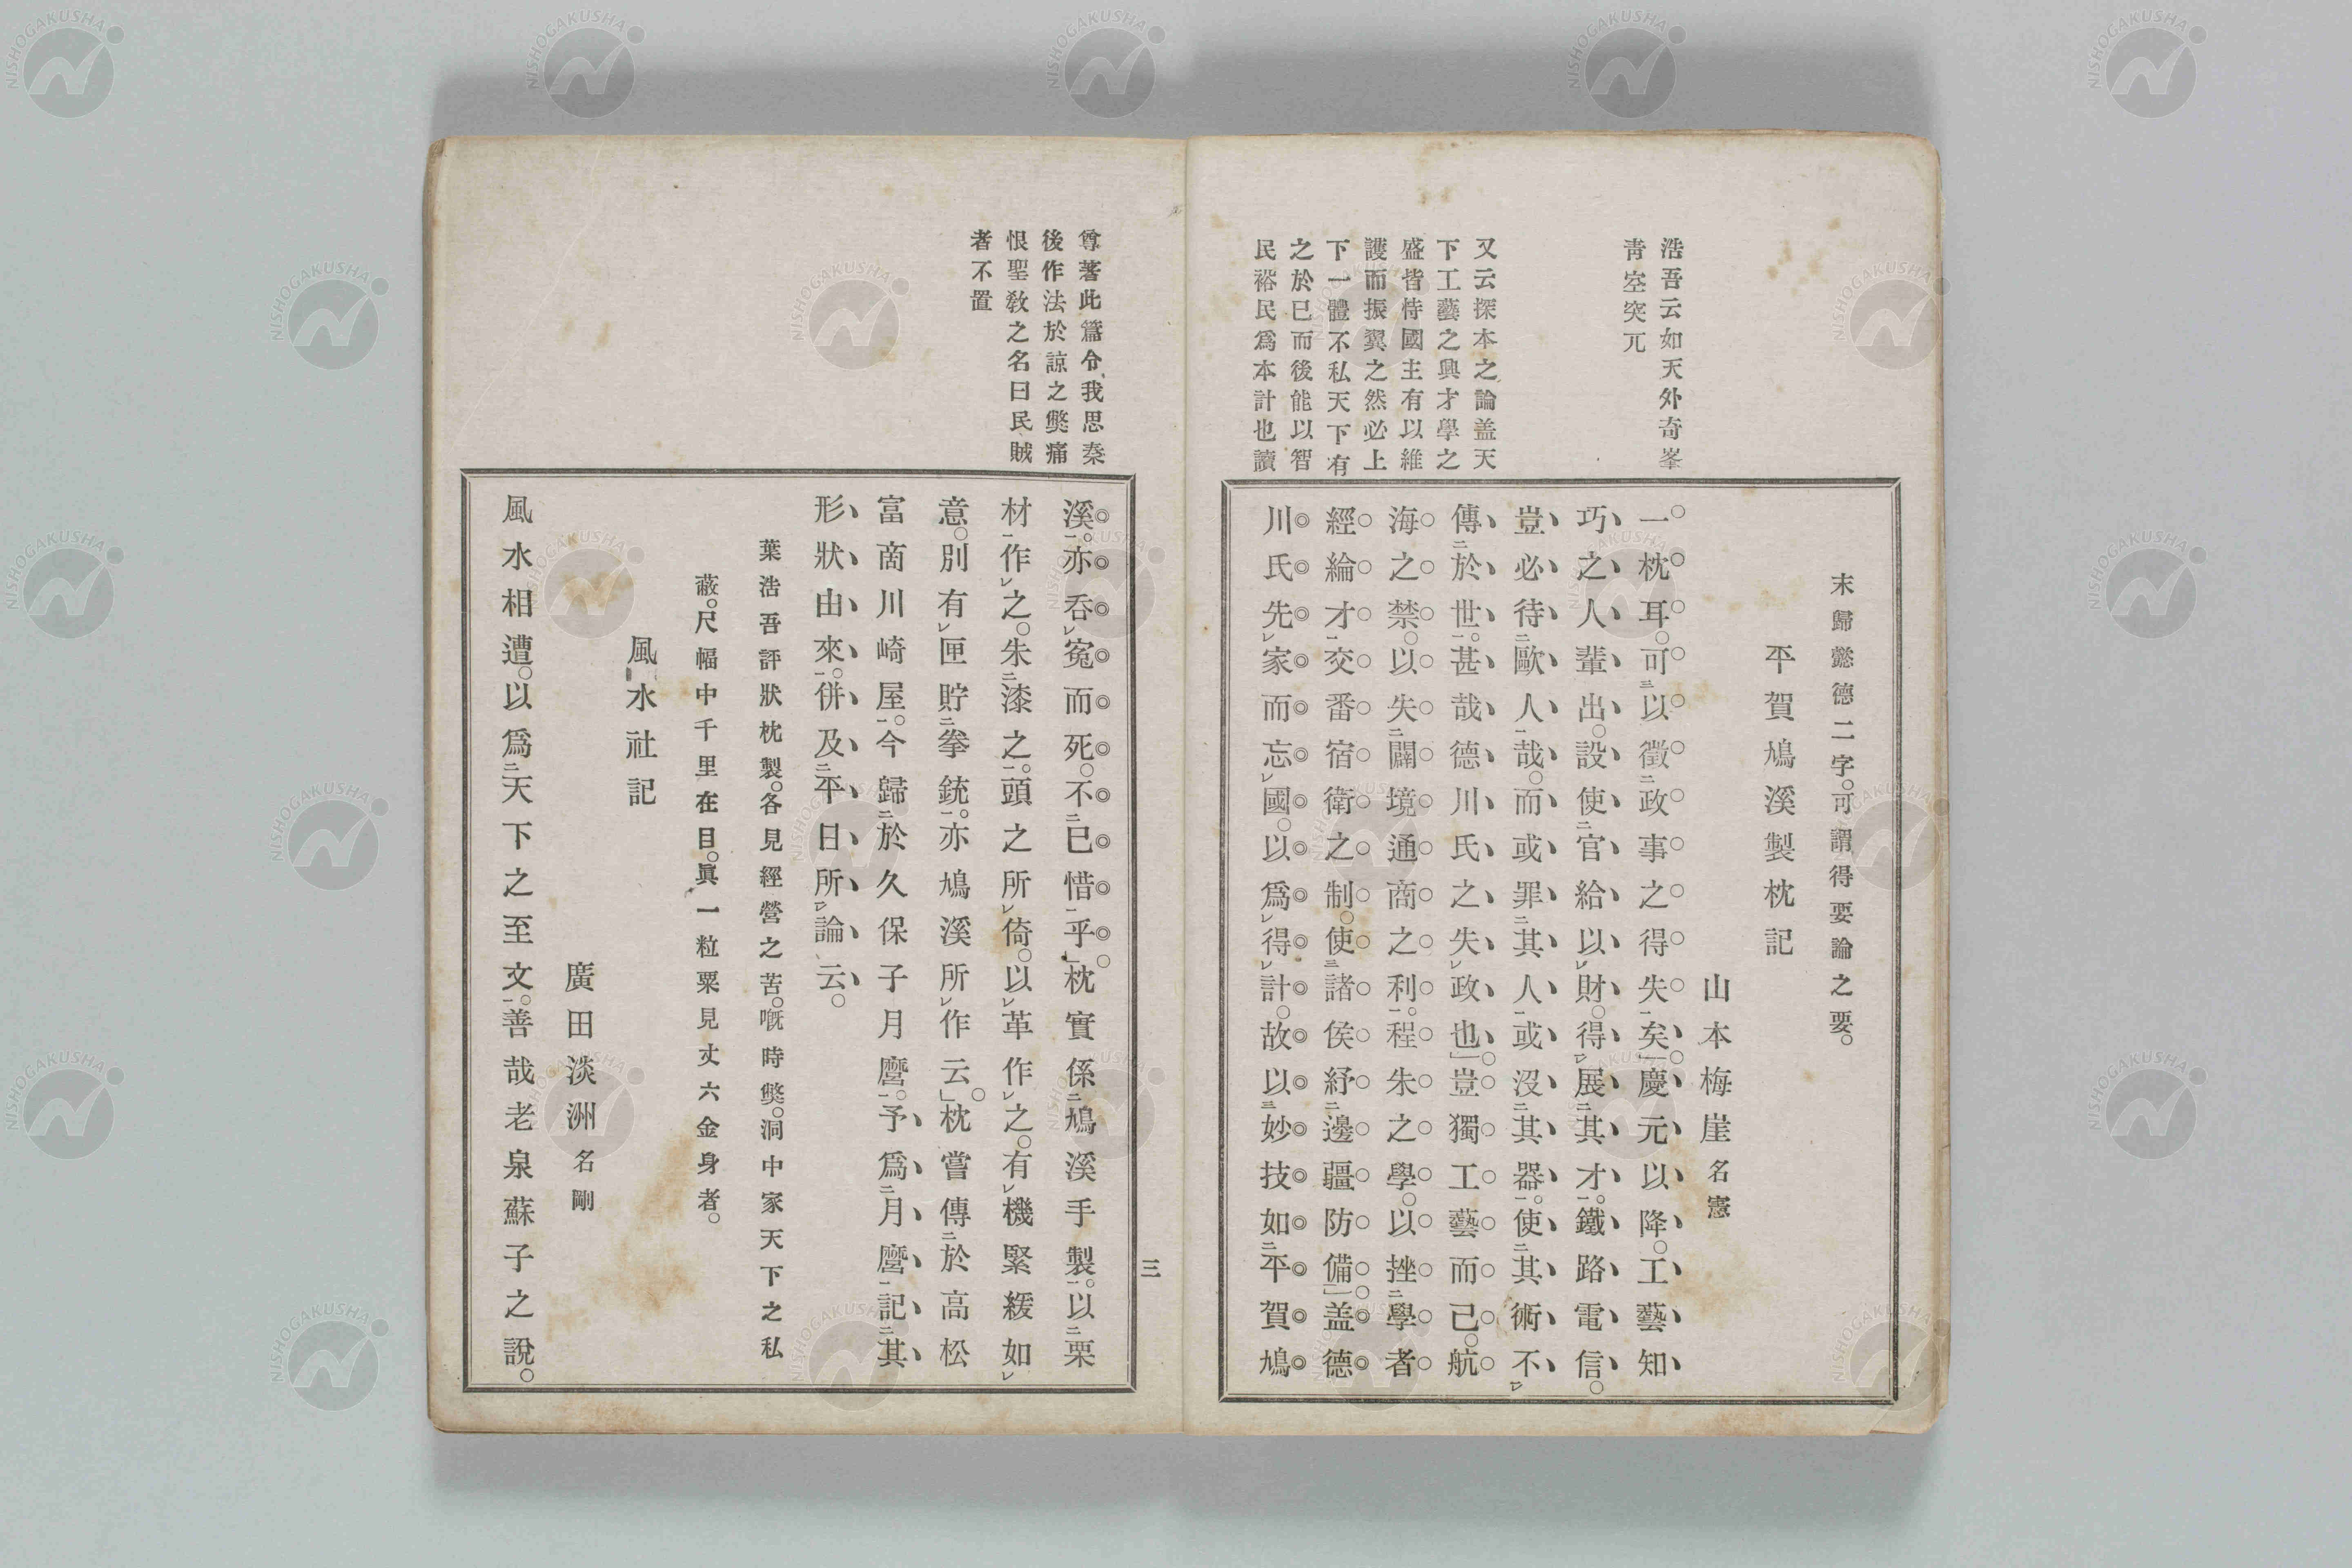 浩吾云如天外奇峯
靑空突兀
又云探本之論盖天
下工藝之興才學之
盛皆恃國主有以維
護而振翼之然必上
下一體不私天下有
之於已而後能以智
民裕民爲本計也讀
末歸懿德二字。可謂得要論之要。
平賀鳩溪製枕記
山本梅崖名憲
一枕耳。可三以徵二政事之得失一矣」。慶元以降。工藝知
巧之人輩出。設使二官給以レ財。得レ展二其才一。鐵路電信。
豈必待二歐人一哉。而或罪二其人一或沒二其器一。使二其術不レ
傳二於世一。甚哉德川氏之失レ政也」。豈獨工藝而已。航
海之禁。以失二闢境通商之利一。程朱之學。以挫二學者
經綸才一交番宿衛之制。使三諸侯紓二邊疆防備一」。盖德
川氏先レ家而忘レ國。以爲レ得レ計。故以三妙技如二平賀鳩
溪一。亦呑レ寃而死。不二已惜一乎」。枕實係二鳩溪手製一。以二栗
材一作レ之。朱二漆之一。頭之所レ倚。以レ革作レ之。有レ機緊緩如レ
意。別有レ匣貯二拳銃一。亦鳩溪所レ作云」。枕嘗傳二於高松
富商川崎屋一。今歸二於久保子月麿一。予爲二月麿一記二其
形狀由來一。併及二平日所レ論云。
葉浩吾評狀枕製。各見經營之苦。嘅時獘。洞中家天下之私
蔽。尺幅中千里在目。眞一粒粟見丈六金身者。
風水社記
廣田淡洲名剛
風水相遭。以爲二天下之至文一。善哉老泉蘇子之說。
尊著此篇令我思秦
後作法於諒之獘痛
恨聖敎之名曰民賊
者不置
三
NISHOGAKUSHA